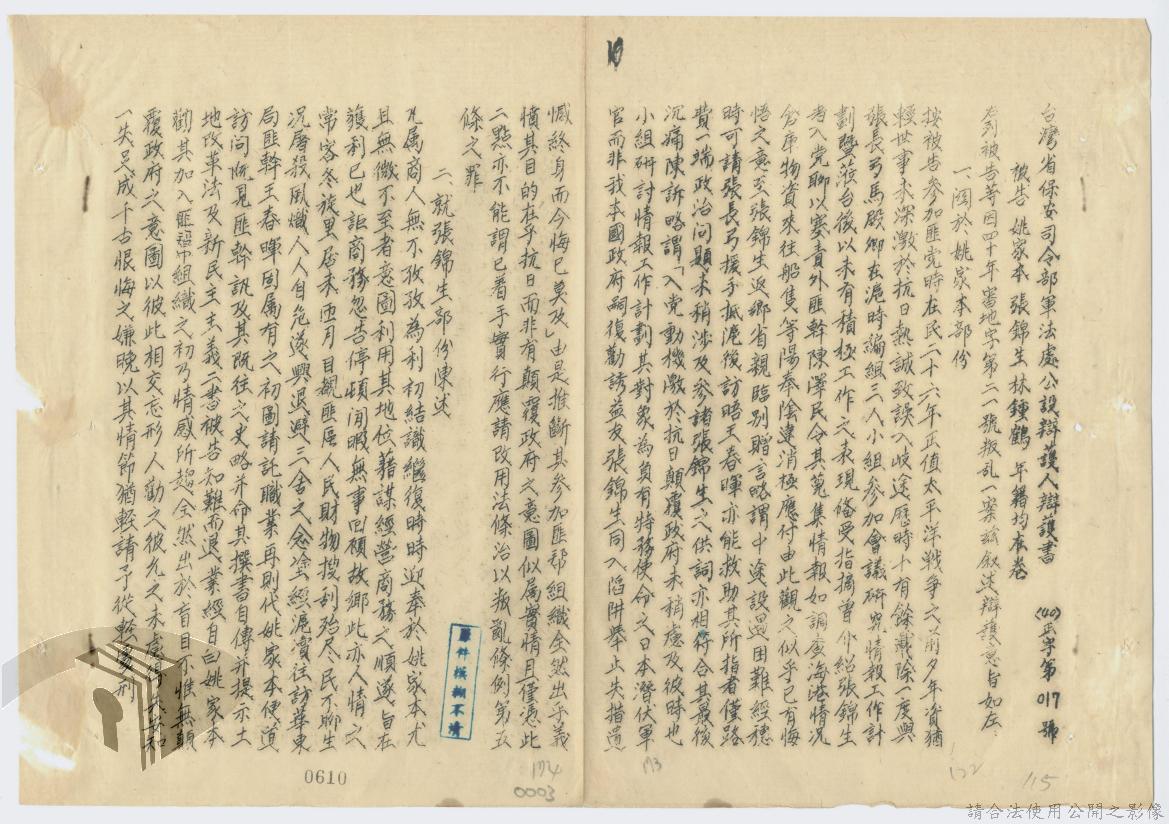 台灣省保安司令部軍法處公設辯護人辯護書
(40)正字第017號
被告 姚家本 張錦生 林鍾鶴 年籍均在卷
右列被告等因四十年審地字第二一號叛乱一案茲敘述辯護意旨如左:
一、關於姚家本部份
按被告參加匪党時在民二十六年正值太平洋戰争之前夕年資猶
輕世事未深激於抗日熱誠致誤入歧途歷時十有餘歲除一度與
張長弓馬殿卿在滬時編組三人小組參加會議研究情報工作計
劃暨蒞台後以未有積極工作之表現條受指摘曾介紹張錦生
者入党聊以塞責外匪幹陳澤民令其蒐集情報如調查海港情况
倉庫物資來往船隻等陽奉陰違消極應付由此觀之似乎已有悔
悟之意至張錦生返鄉省親臨別贈言略謂中途設遇困難經穗
時可請張長弓援手抵滬後訪晤王春暉亦能救助其所指者僅路
費一端政治问題未稍涉及參諸張錦生之供詞亦相符合其最後
沉痛陳訴略謂「入党動機激於抗日顛覆政府未稍慮及彼時也
小組研討情報工作計劃其對象為負有特務使命之日本潛伏軍
官而非我本國政府嗣復勸誘益友張錦生同入陷阱舉止失措遺
憾終身而今悔已莫及」由是推斷其參加匪部組織全然出乎義
憤其目的在乎抗日而非有顛覆政府之意圖似属實情且僅憑此
二點亦不能謂已着手實行應請改用法條治以叛亂條例第五
條之罪
二、就張錦生部份陳述
凡属商人無不孜孜為利初結識繼復時時迎奉於姚家本尤
且無微不至者意圖利用其地位藉謀經營商務之順遂旨在
獲利已也詎商務忽告停頓閒暇無事回顧故鄉此亦人情之
常客冬旋里居未匝月目覩匪屠人民財物搜刮殆尽民不聊生
况屠殺風熾人人自危遂興退避三舍之念迳經滬濱往訪華東
局匪幹王春暉固属有之初圖請託職業再則代姚家本便道
訪问既見匪幹訊及其既往之史略并命其撰書自傳并提示土
地改革法及新民主主義二書被告知難而退業經自白姚家本
勸其加入匪組織之初乃情感所趨全然出於盲目不惟無顛
覆政府之意圖以彼此相交忘形人勸之彼允之未慮
一失足成千古恨悔之嫌晚以其情節猶輕請予從輕量刑
原件模糊不清
0610
174
0003
173
172
115
請合法使用公開之影像